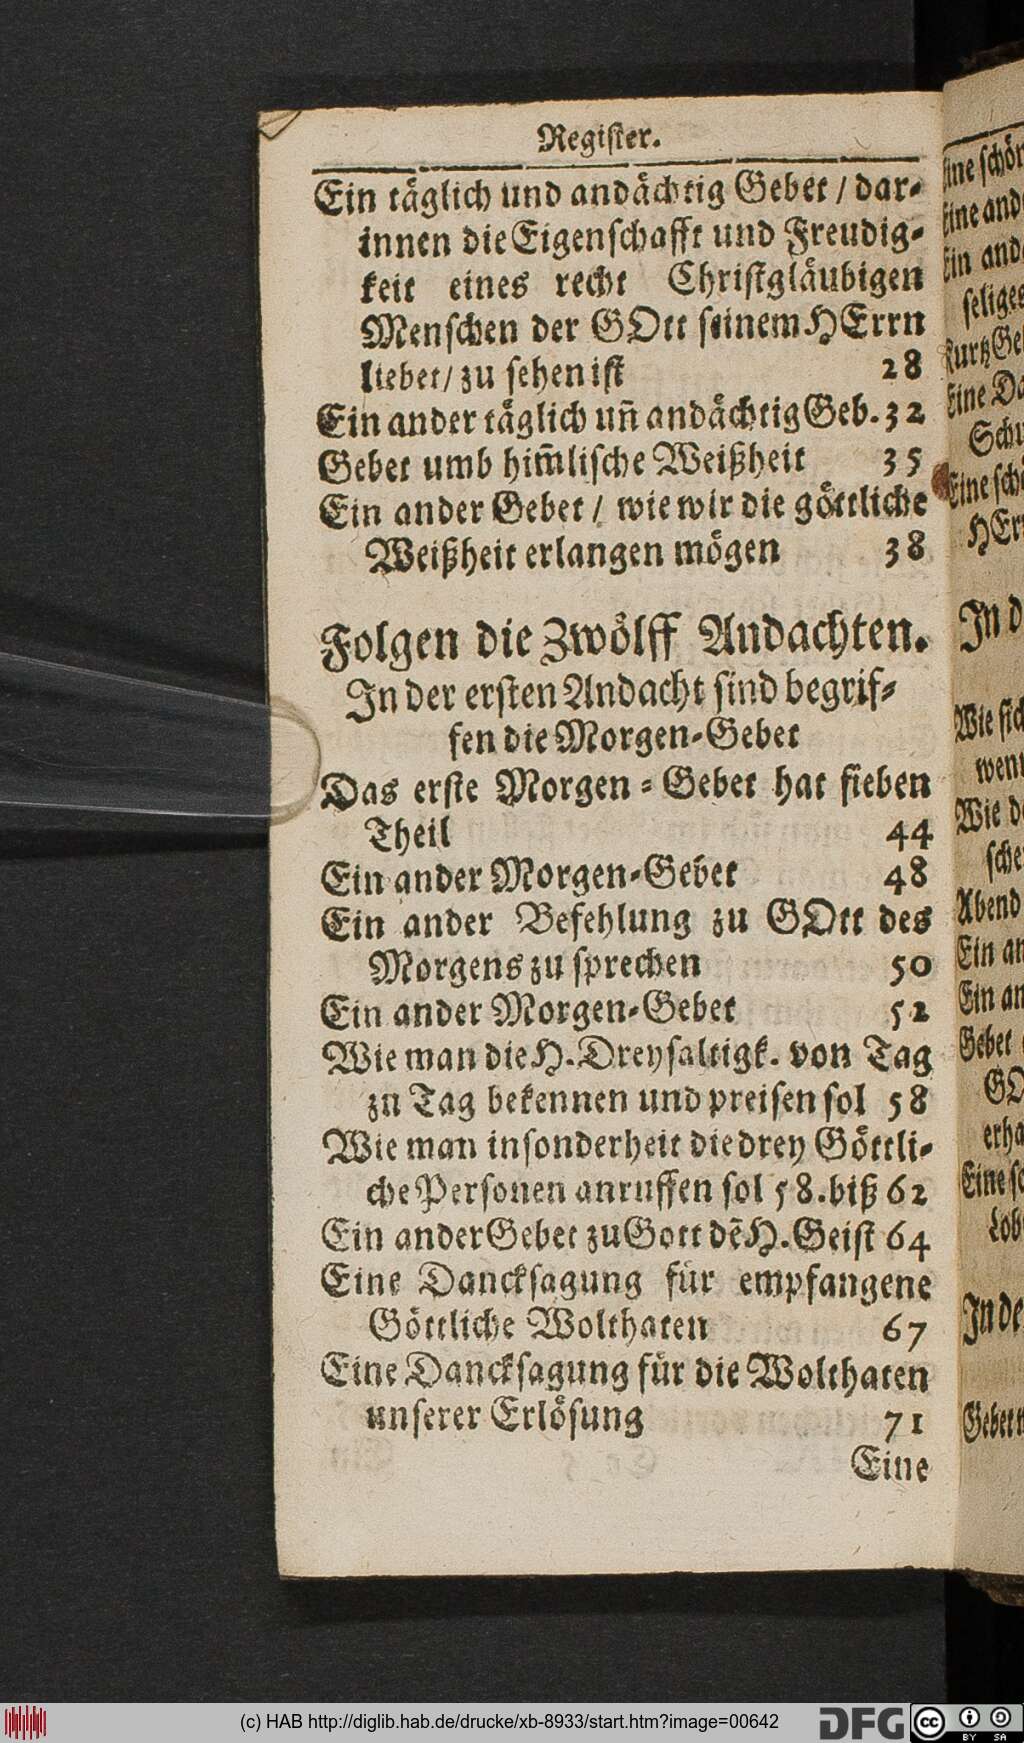 Register.
Ein täglich und andächtig Gebet / dar-
innen die Eigenschafft und Freudig-
keit eines recht Christgläubigen
Menschen der GOtt seinem HErrn
liebet / zu sehen ist 28
Ein ander täglich uñ andächtig Geb. 32
Gebet umb him̃lische Weißheit 35
Ein ander Gebet / wie wir die göttliche
Weißheit erlangen mögen 38
Folgen die Zwölff Andachten.
In der ersten Andacht sind begrif-
fen die Morgen-Gebet
Das erste Morgen-Gebet hat sieben
Theil 44
Ein ander Morgen-Gebet 48
Ein ander Befehlung zu GOtt des
Morgens zu sprechen 50
Ein ander Morgen-Gebet 52
Wie man die H. Dreyfaltigk. von Tag
zu Tag bekennen und preisen sol 58
Wie man insonderheit die drey Göttli-
che Personen anruffen sol 58. biß 62
Ein ander Gebet zu Gott dẽ H. Geist 64
Eine Dancksagung für empfangene
Göttliche Wolthaten 67
Eine Dancksagung für die Wolthaten
unserer Erlösung 71
Eine
(c) HAB http://diglib.hab.de/drucke/xb-8933/start.htm?image=00642
DFG
cc BY SA